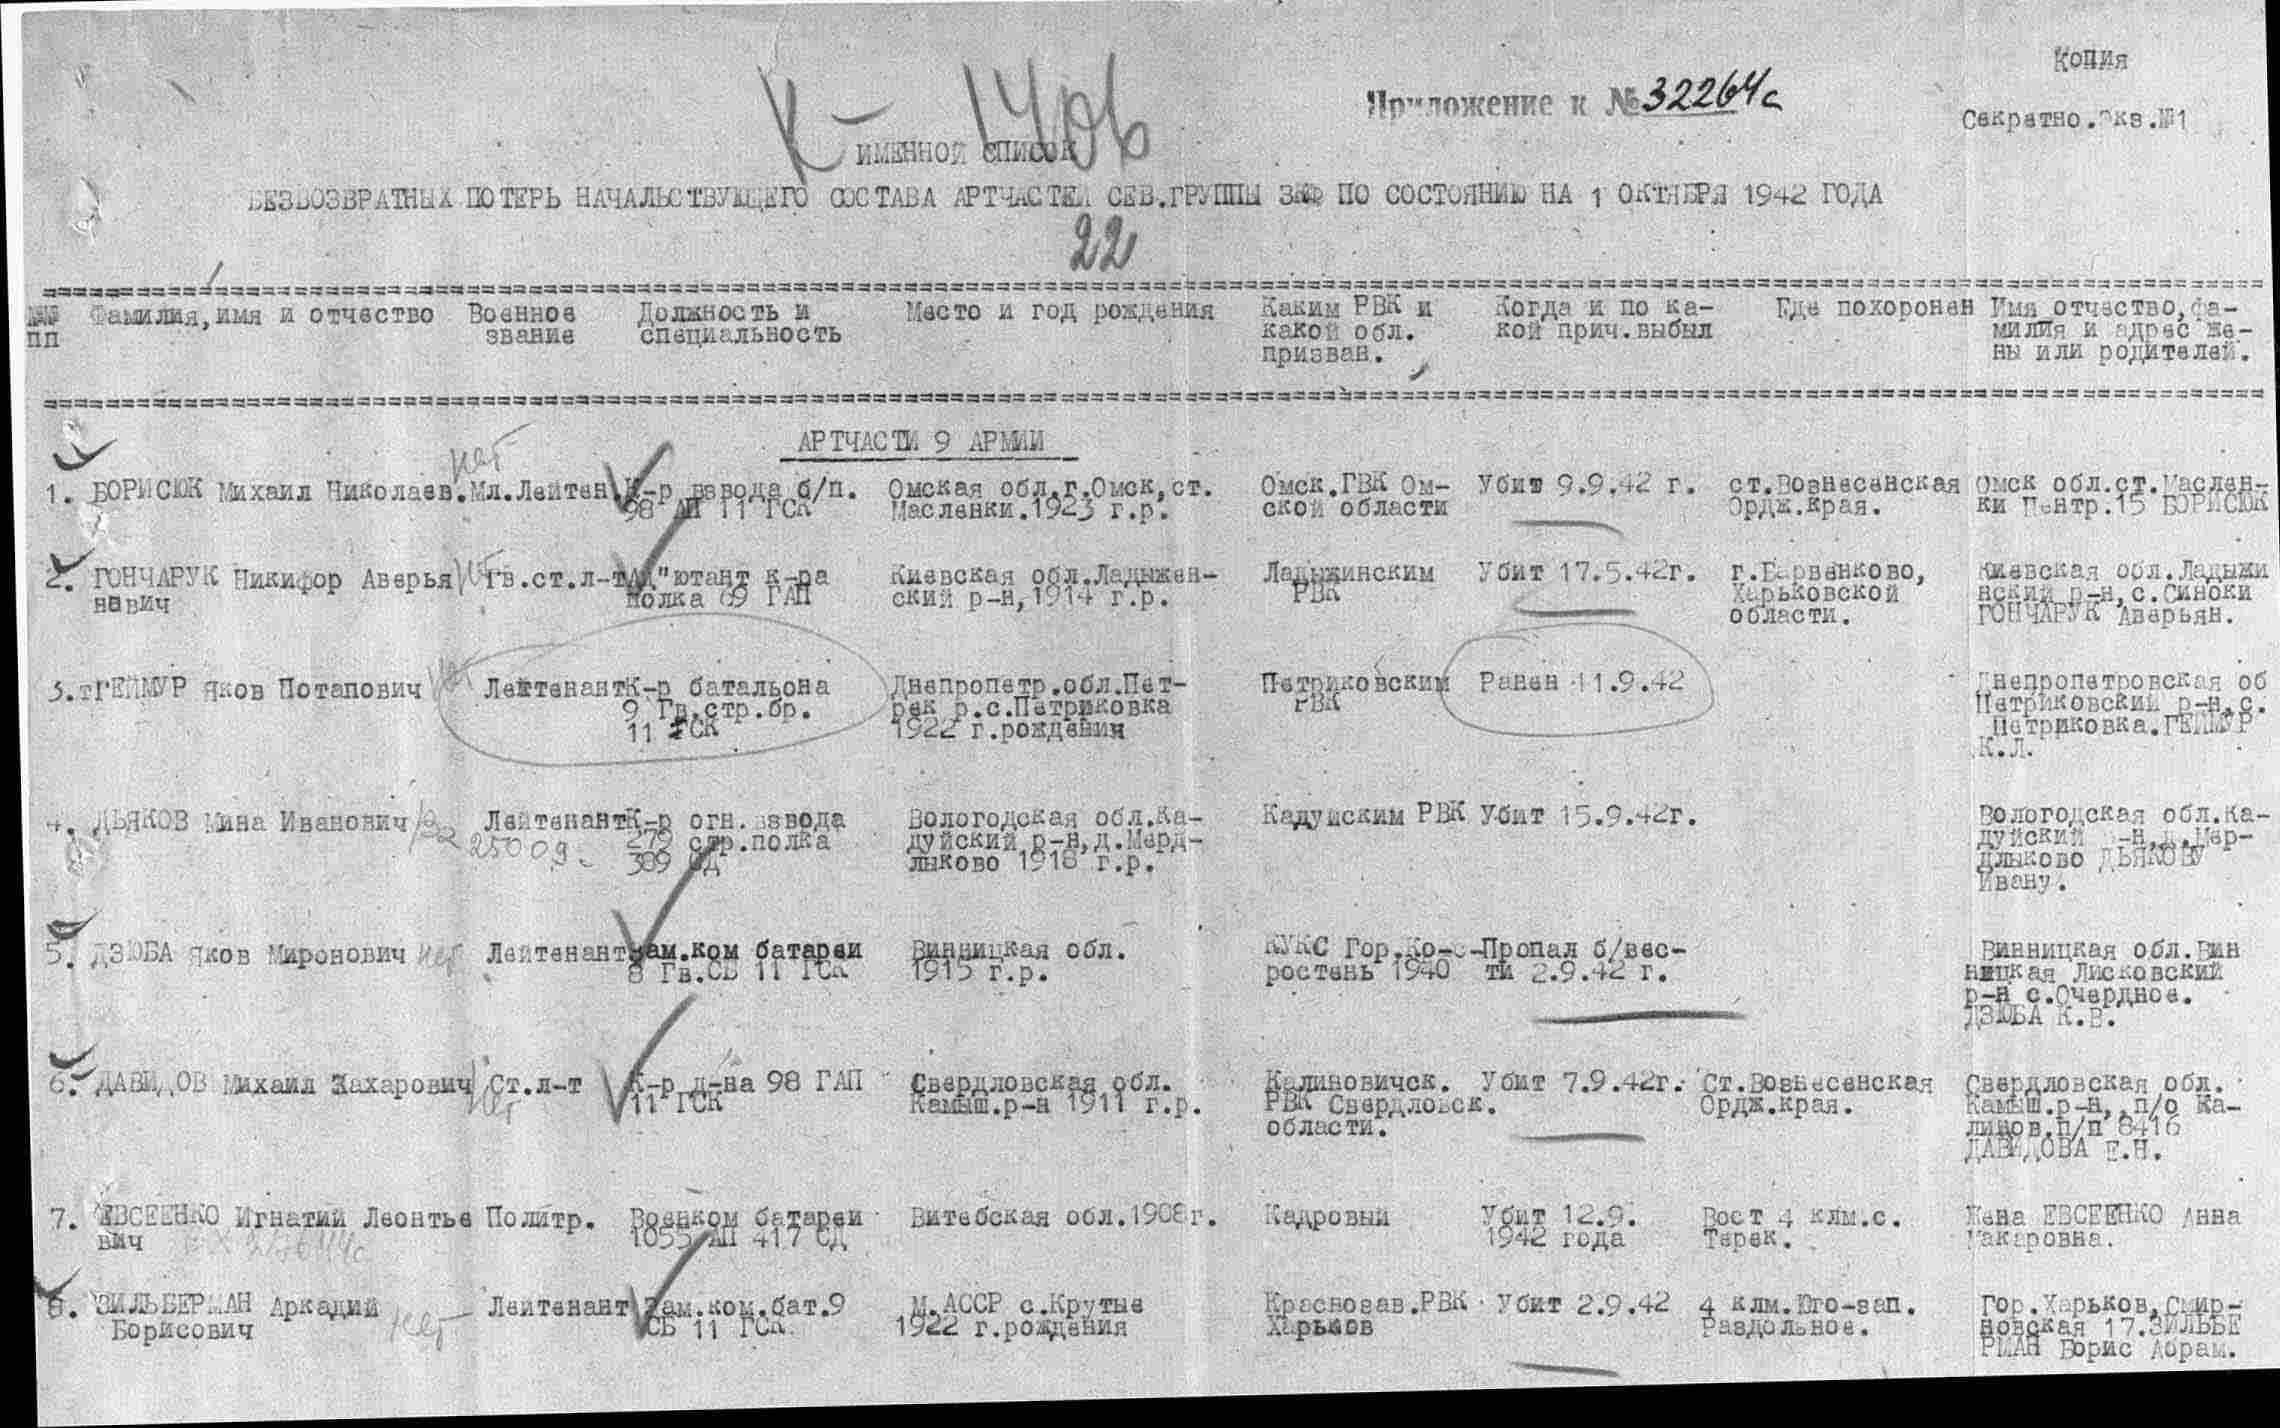 Копия
К-1406
Приложение к № 32264с
Секретно.экз.№1
ИМЕННОЙ СПИСОК
БЕЗВОЗВРАТНЫХ ПОТЕРЬ НАЧАЛЬСТВУЮЩЕГО СОСТАВА АРТЧАСТЕЙ СЕВ.ГРУППЫ ЗКФ ПО СОСТОЯНИЮ НА 1 ОКТЯБРЯ 1942 ГОДА
22
№№ Фамилия,имя и отчество Военное Должность и Место и год рождения Каким РВК и Когда и по ка- Где похоронен Имя отчество,фа-
пп звание специальность какой обл. кой прич.выбыл милия и адрес же-
призван. ны или родителей.
АРТЧАСТИ 9 АРМИИ
нет
1. БОРИСЮК Михаил Николаев. Мл.Лейтен. К-р взвода б/п. Омская обл.г.Омск,ст. Омск.ГВК Ом- Убит 9.9.42 г. ст.Вознесенская Омск обл.ст.Маслен-
98 АП 11 ГСК Масленки.1923 г.р. ской области Ордж.края. ки Центр.15 БОРИСЮК
2. ГОНЧАРУК Никифор Аверья нет Гв.ст.л-т Ад"ютант к-ра Киевская обл.Ладыжен- Ладыжинским Убит 17.5.42г. г.Барвенково, Киевская обл.Ладыжи
нович полка 69 ГАП ский р-н,1914 г.р. РВК Харьковской нский р-н,с.Синоки
области. ГОНЧАРУК Аверьян.
3. ГЕЙМУР Яков Потапович нет Лейтенант К-р батальона Днепропетр.обл.Пет- Петриковским Ранен 11.9.42 Днепропетровская об
9 Гв.стр.бр. рек р.с.Петриковка РВК Петриковский р-н,с.
11 ГСК 1922 г.рождения Петриковка.ГЕЙМУР
К.Л.
4. ДЬЯКОВ Мина Иванович Лейтенант К-р огн.взвода Вологодская обл.Ка- Кадуйским РВК Убит 15.9.42г. Вологодская обл.Ка-
25009 279 стр.полка дуйский р-н,д.Мерд- дуйский р-н,д.Мер-
389 СД лыково 1918 г.р. длыково ДЬЯКОВУ
Ивану.
5. ДЗЮБА Яков Миронович нет Лейтенант Зам.ком батареи Винницкая обл. КУКС Гор.Ко-с- Пропал б/вес- Винницкая обл.Вин
8 Гв.СБ 11 ГСК 1915 г.р. ростень 1940 ти 2.9.42 г. ницкая Лисковский
р-н с.Очердное.
ДЗЮБА К.В.
6. ДАВИДОВ Михаил Захарович Ст.л-т К-р д-на 98 ГАП Свердловская обл. Калиновичск. Убит 7.9.42г. Ст.Вознесенская Свердловская обл.
нет 11 ГСК Камыш.р-н 1911 г.р. РВК Свердловск. Ордж.края. Камыш.р-н,,п/о Ка-
области. линов.п/п 8416
ДАВИДОВА Е.Н.
7. ЕВСЕЕНКО Игнатий Леонтье Политр. Военком батареи Витебская обл.1908г. Кадровый Убит 12.9. Вост 4 клм.с. Жена ЕВСЕЕНКО Анна
вич 1055 АП 417 СД 1942 года Терек. Макаровна.
8. ЗИЛЬБЕРМАН Аркадий Лейтенант Зам.ком.бат.9 М.АССР с.Крутые Краснозав.РВК Убит 2.9.42 4 клм.Юго-зап. Гор.Харьков,Смир-
Борисович нет СБ 11 ГСК 1922 г.рождения Харьков Раздольное. новская 17.ЗИЛЬБЕ
РМАН Борис Абрам.